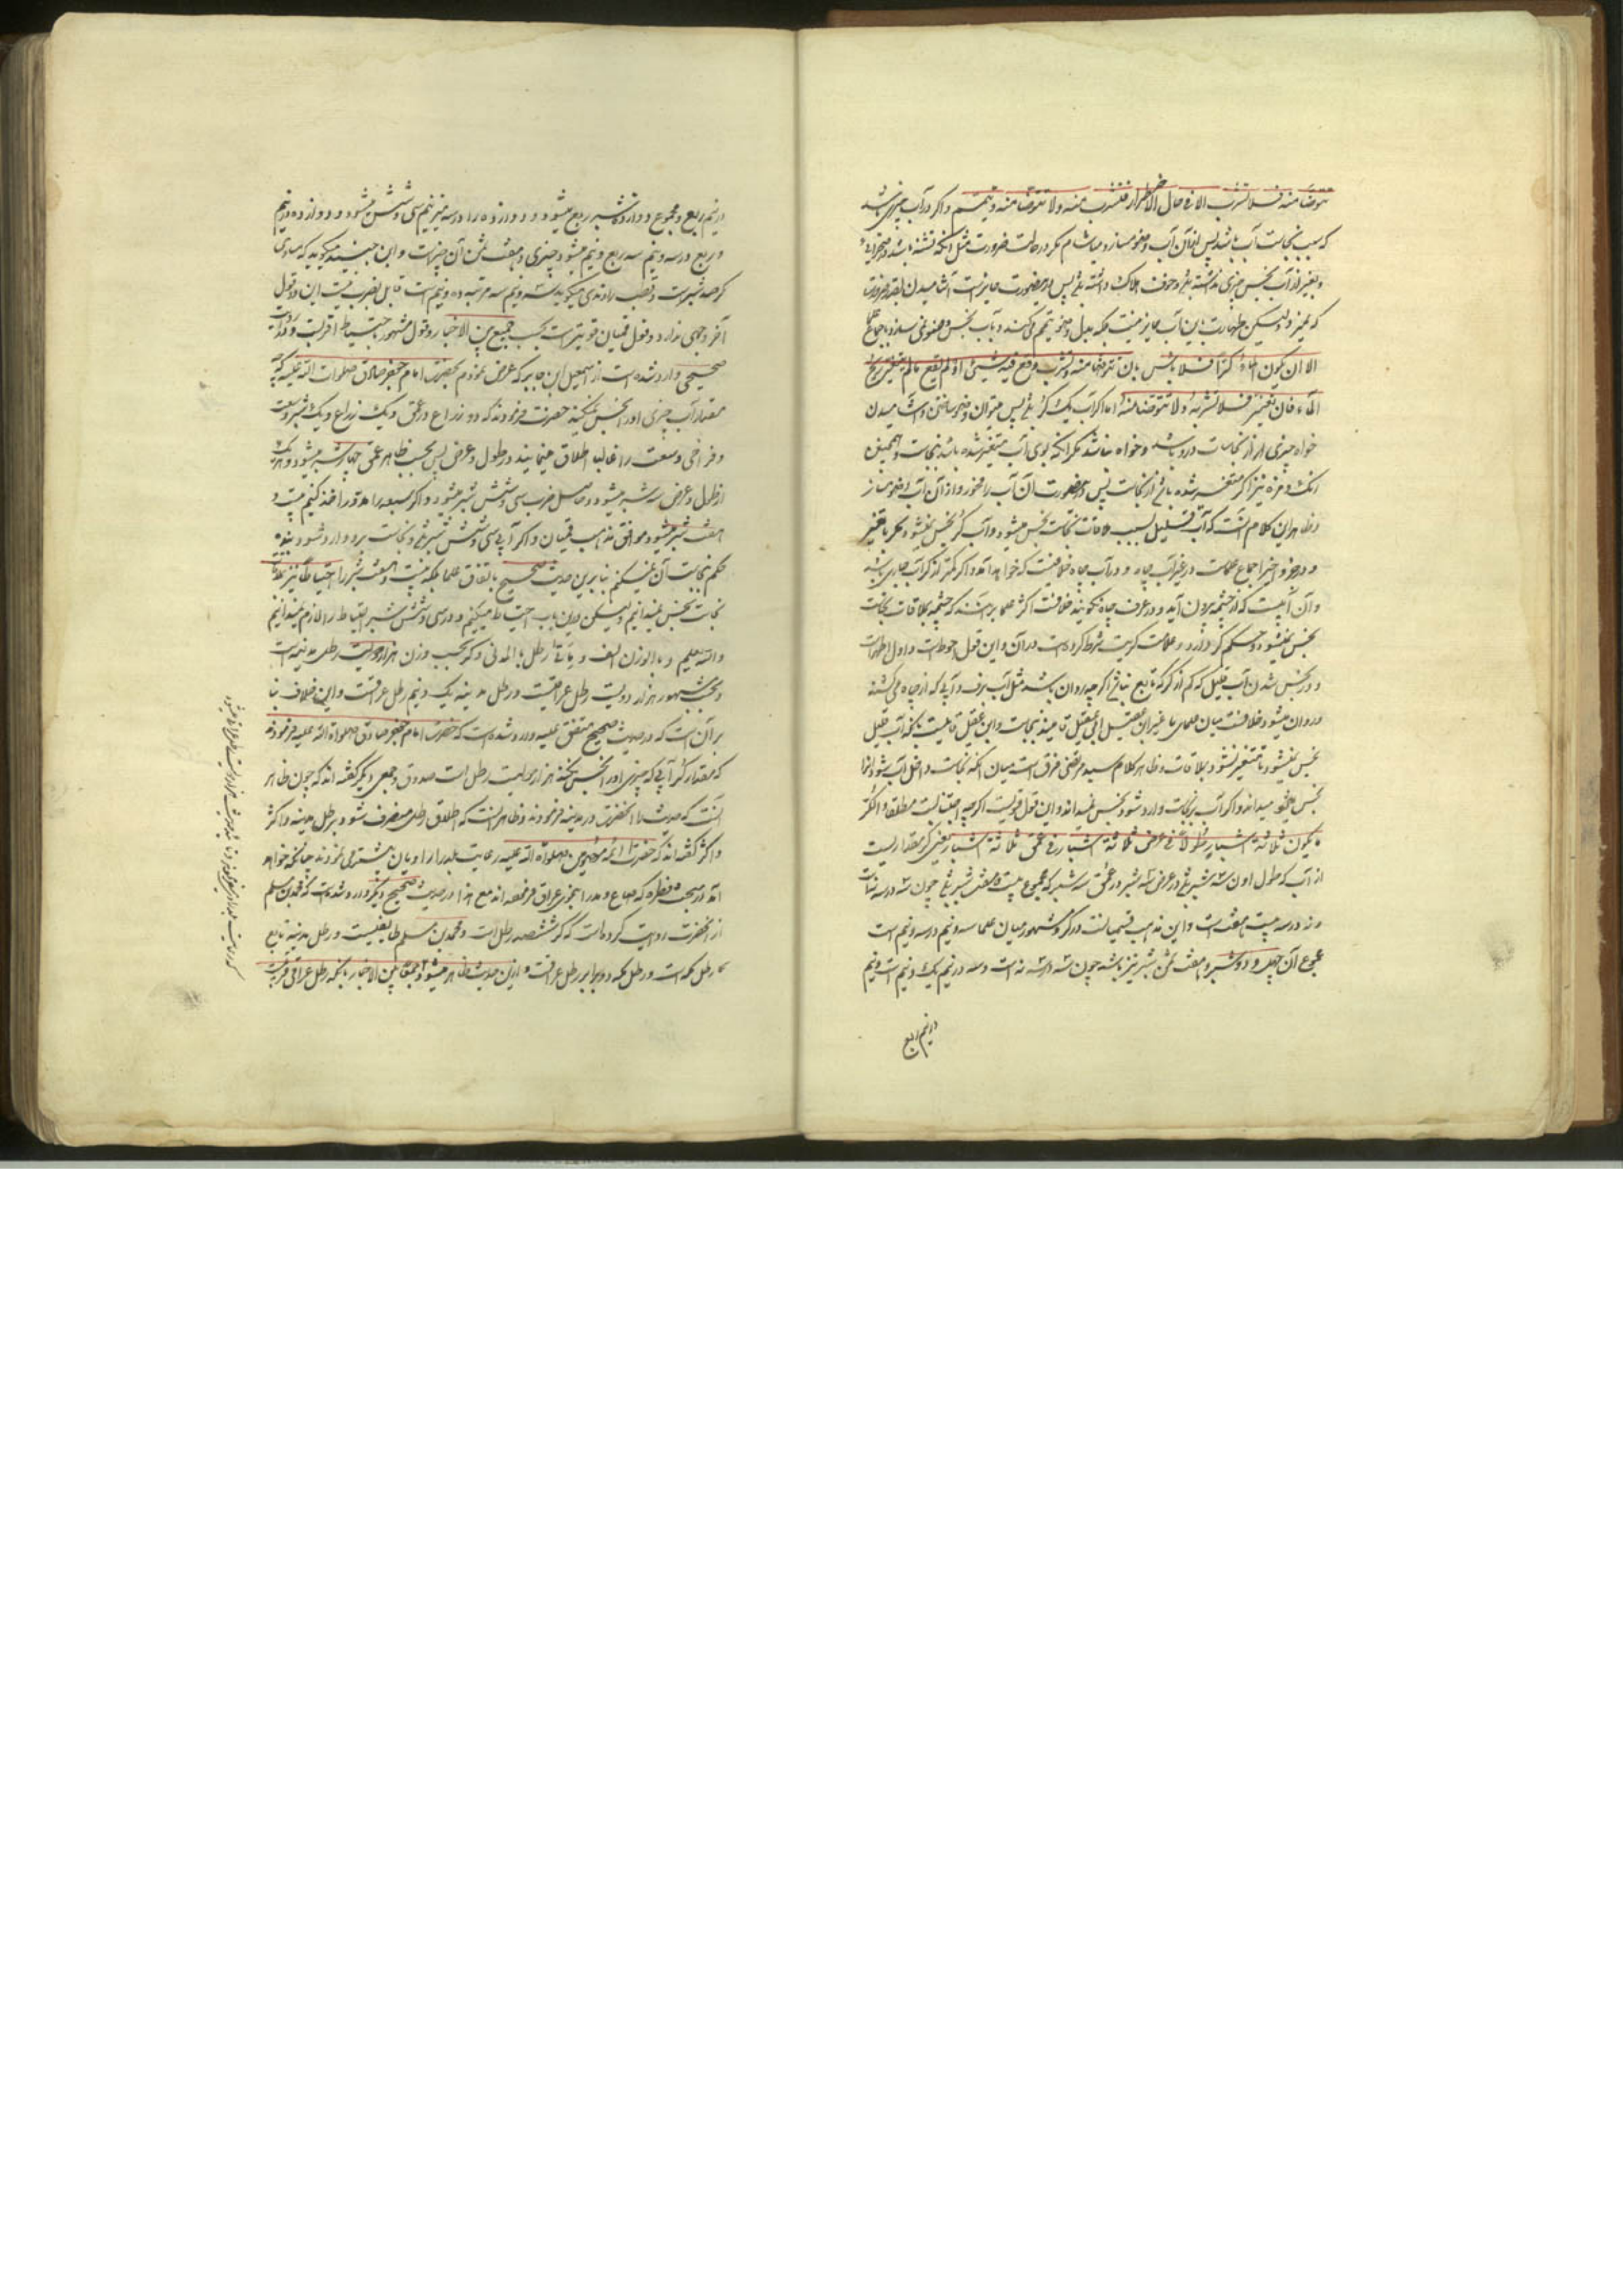 یتوضأ منه فلا تشرب الا فی حال الاضطرار فتشرب منه ولا تتوضأ منه وتیمم و اگر در آب چیزی باشد
که سبب نجاست آب باشد پس از آن آب وضو مساز و میاشام مگر در حالت ضرورت مثل آنکه تشنه باشد
و بغیر از آب نجس چیزی نداشته باشد و خوف هلاک داشته باشد پس درین صورت جایز است آشامیدن بقدر ضرورت
که بمیرد ولیکن طهارت باین آب جایز نیست بلکه بدل وضو تیمم می کند و بآب نجس وضو نمی سازد باجماع علما
الا ان یکون الماء کرّا فلا بأس بان تتوضأ منه و تشرب وقع فیه شیئ او لم یقع مالم یتغیر ریح
الماء فان تغیّر فلا تشربه ولا تتوضأ منه اما اگر آب یک کر باشد پس میتوان وضو ساختن و آشامیدن
خواه چیزی از نجاسات درو باشد و خواه نباشد مگر آنکه بوی آب متغیر شده باشد بنجاست و همچنین
رنگ و مزه نیز اگر متغیر شده باشد از نجاست پس درین صورت آن آب را مخور و از آن آب وضو مساز
و ظاهر این کلام آنست که آب قلیل بسبب ملاقات نجاست نجس میشود و آب کر نجس نمیشود مگر با تغیر
و درین دو اجماع علماست در غیر آب چاه و در آب چاه خلافیست که خواهد آمد و اگر کمتر از کر آب جاری باشد
و آن آبیست که از چشمه بیرون آید و در عرف چاه نگویند خلافست اکثر علما برآنند که چشمه بملاقات نجاست
نجس نمیشود و حکم کر دارد و علامه کریت شرط کرده است در آن و این قول احوط است و اول اظهر است
و در نجس شدن آب قلیل که کم از کر که نابع نباشد اگر چه روان باشد مثل آب برف و آبی که از چاه می کشند
و روان میشود خلافست میان علمای ما غیر ابن ابی عقیل قایلند بنجاست و ابن عقیل قایلست بآنکه آب قلیل
نجس نمیشود تا متغیر نشود بملاقات و ظاهر کلام سید مرتضی فرق است میان آنکه نجاست داخل آب شود آنرا
نجس میداند و اگر آب بر نجاست وارد شود نجس نمیداند و این قول قویست اگرچه اجتناب مطلقا والکر
ما یکون ثلاثة اشبار طولا فی عرض ثلاثة اشبار فی عمق ثلاثة اشبار یعنی کر مقداریست
از آب که طول اون سه شبر باشد و عرض سه شبر و عمق سه شبر که مجموع بیست و هفت شبر باشد چون سه در سه نه است
و نه در سه بیست و هفت است و این مذهب قمیانست در کر و مشهور میان علما سه و نیم در سه و نیم است
مجموع آن چهل و دو شبر و هفت ثمن شبر نیز باشد چون سه در سه نه است و سه در نیم یک و نیم است و نیم
در نیم ربع
در نیم ربع و مجموع دوازده شبر ربع میشود و دوازده را در سه و نیم سی و شش میشود و دوازده در نیم
و ربع در سه و نیم سه ربع و نیم میشود و هفت ثمن آن و ابن جنید میگوید که مساوی
کر صد شبرست و قطب راوندی میگوید سه و نیم سه مرتبه ده و نیم است قابل بضرب نیست این دو قول
آخر وجهی ندارد و قول قمیان قویترست بحسب جمع بین الاخبار و قول مشهور احتیاط اقربست
صحیحی وارد شده است از اسمعیل ابن جابر که عرض نمودم بحضرت امام جعفر صادق صلوات الله علیه که چه
مقدار آب چیزی او را نجس نمیکند حضرت فرمودند که دو ذراع در عمق و یک ذراع و یک شبر وسعت
و فراخی و سعت را غالبا اطلاق مینمایند در طول و عرض پس بحسب ظاهر عمق چهار شبر میشود و هر یک
از طول و عرض سه شبر میشود و حاصل ضرب سی و شش شبر میشود و اگر سعه را مدور اخذ کنیم بیست و
هفت شبر میشود موافق مذهب قمیان و اگر آبی سی و شش شبر باشد و نجاست برو وارد شود
حکم بنجاست آن نمیکنم بنابرین حدیث صحیح باتفاق علما بلکه بیست و هفت شبر را احتیاطا نیز بملاقات
نجاست نجس نمیدانیم ولیکن درین باب احتیاط میکنیم و در سی و شش شبر احتیاط را لازم نمیدانیم
والله یعلم و بالوزن الف و مأتا رطل بالمدنی و کر بحسب وزن هزار و دویست رطل مدینه است
و بحسب مشهور هزار و دویست رطل عراقیست و رطل مدینه یک و نیم رطل عراقست و این خلاف بنا
بر آن است که در حدیث صحیح متفق علیه وارد شده است که حضرت امام جعفر صادق صلواة الله علیه فرمودند
که مقدار کر آبی که چیزی او را نجس نکند هزار و دویست رطل است صدوق و جمعی دیگر گفته اند که چون ظاهر
آنست که حدیث را آنحضرت در مدینه فرمودند و ظاهر آنست که اطلاق رطل منصرف شود برطل مدینه و اکثر
و اکثر گفته اند که حضرات ائمه معصومین صلواة الله علیه رعایت بلد راویان بیشتر می نمودند چنانکه خواهد
آمد در مبحث فطره که صاع و مد را بنحوی عراق فرموده اند مع هذا در حدیث صحیح دیگر وارد شده است که محمد بن مسلم
از آنحضرت روایت کرده است که کر ششصد رطل است و محمد بن مسلم طایفیست و رطل مدینه تابع
رطل مکه است و رطل مکه دو برابر رطل عراقست و ازین حدیث ظاهر میشود جمعا بین الاخبار بآنکه رطل عراقی مرادست